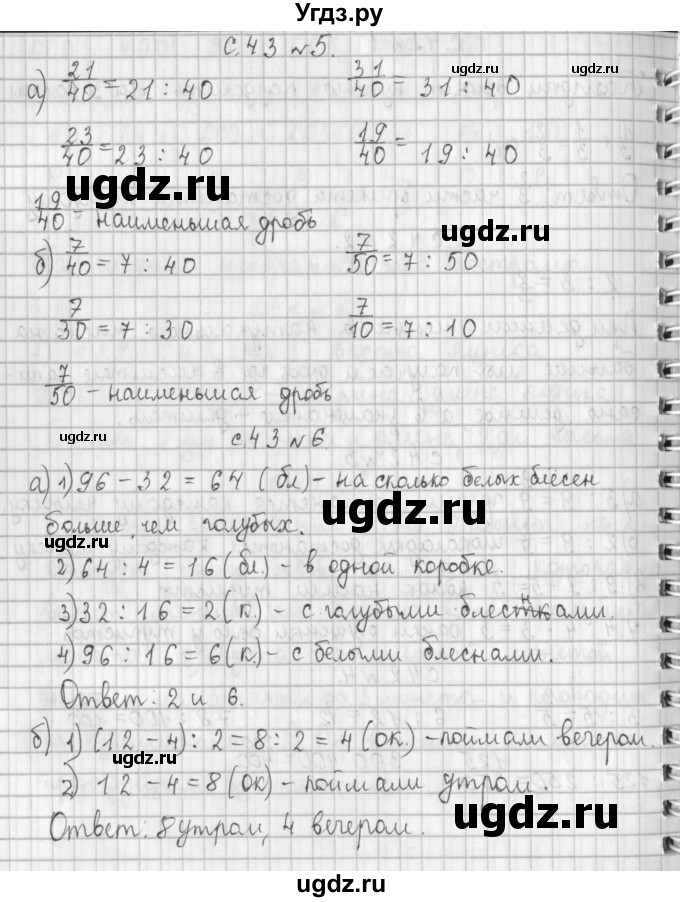 Угдз.ру
с.43 №5.
а) 21/40 = 21 : 40    31/40 = 31 : 40
ugdz.ru ugdz.ru
23/40 = 23 : 40    19/40 = 19 : 40
ugdz.ru ugdz.ru
19/40 - наименьшая дробь
б) 7/40 = 7 : 40    7/50 = 7 : 50
7/30 = 7 : 30    7/10 = 7 : 10
ugdz.ru
7/50 - наименьшая дробь
ugdz.ru
с.43 №6.
ugdz.ru
а) 1) 96 - 32 = 64 (бл) - на сколько белых блесен
больше, чем голубых.
ugdz.ru
2) 64 : 4 = 16 (бл.) - в одной коробке.
3) 32 : 16 = 2 (к) - с голубыми блеснами.
ugdz.ru
4) 96 : 16 = 6 (к.) - с белыми блеснами.
Ответ: 2 и 6.
ugdz.ru
б) 1) (12 - 4) : 2 = 8 : 2 = 4 (ок.) - поймали вечером.
ugdz.ru
2) 12 - 4 = 8 (ок) - поймали утром.
ugdz.ru
Ответ: 8 утром, 4 вечером.
ugdz.ru